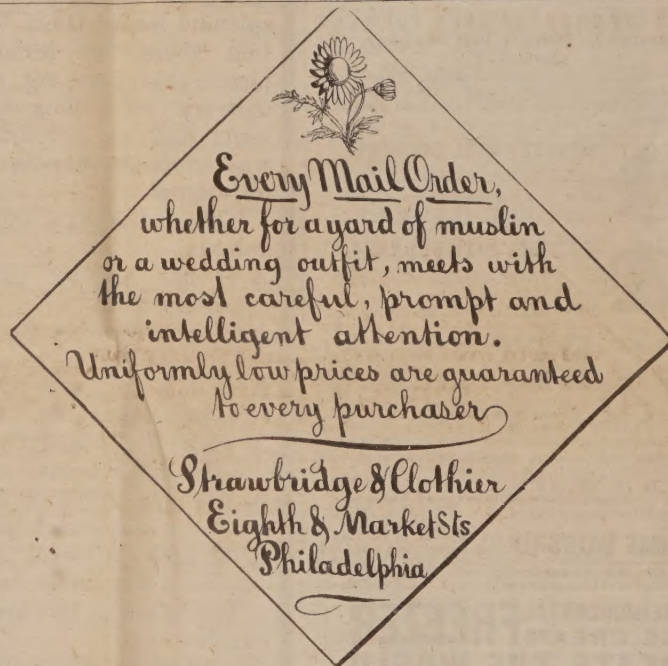 Every Mail Order,
whether for a yard of muslin
or a wedding outfit, meets with
the most careful, prompt and
intelligent attention.
Uniformly low prices are guaranteed
to every purchaser
Strawbridge & Clothier
Eighth & Market Sts
Philadelphia